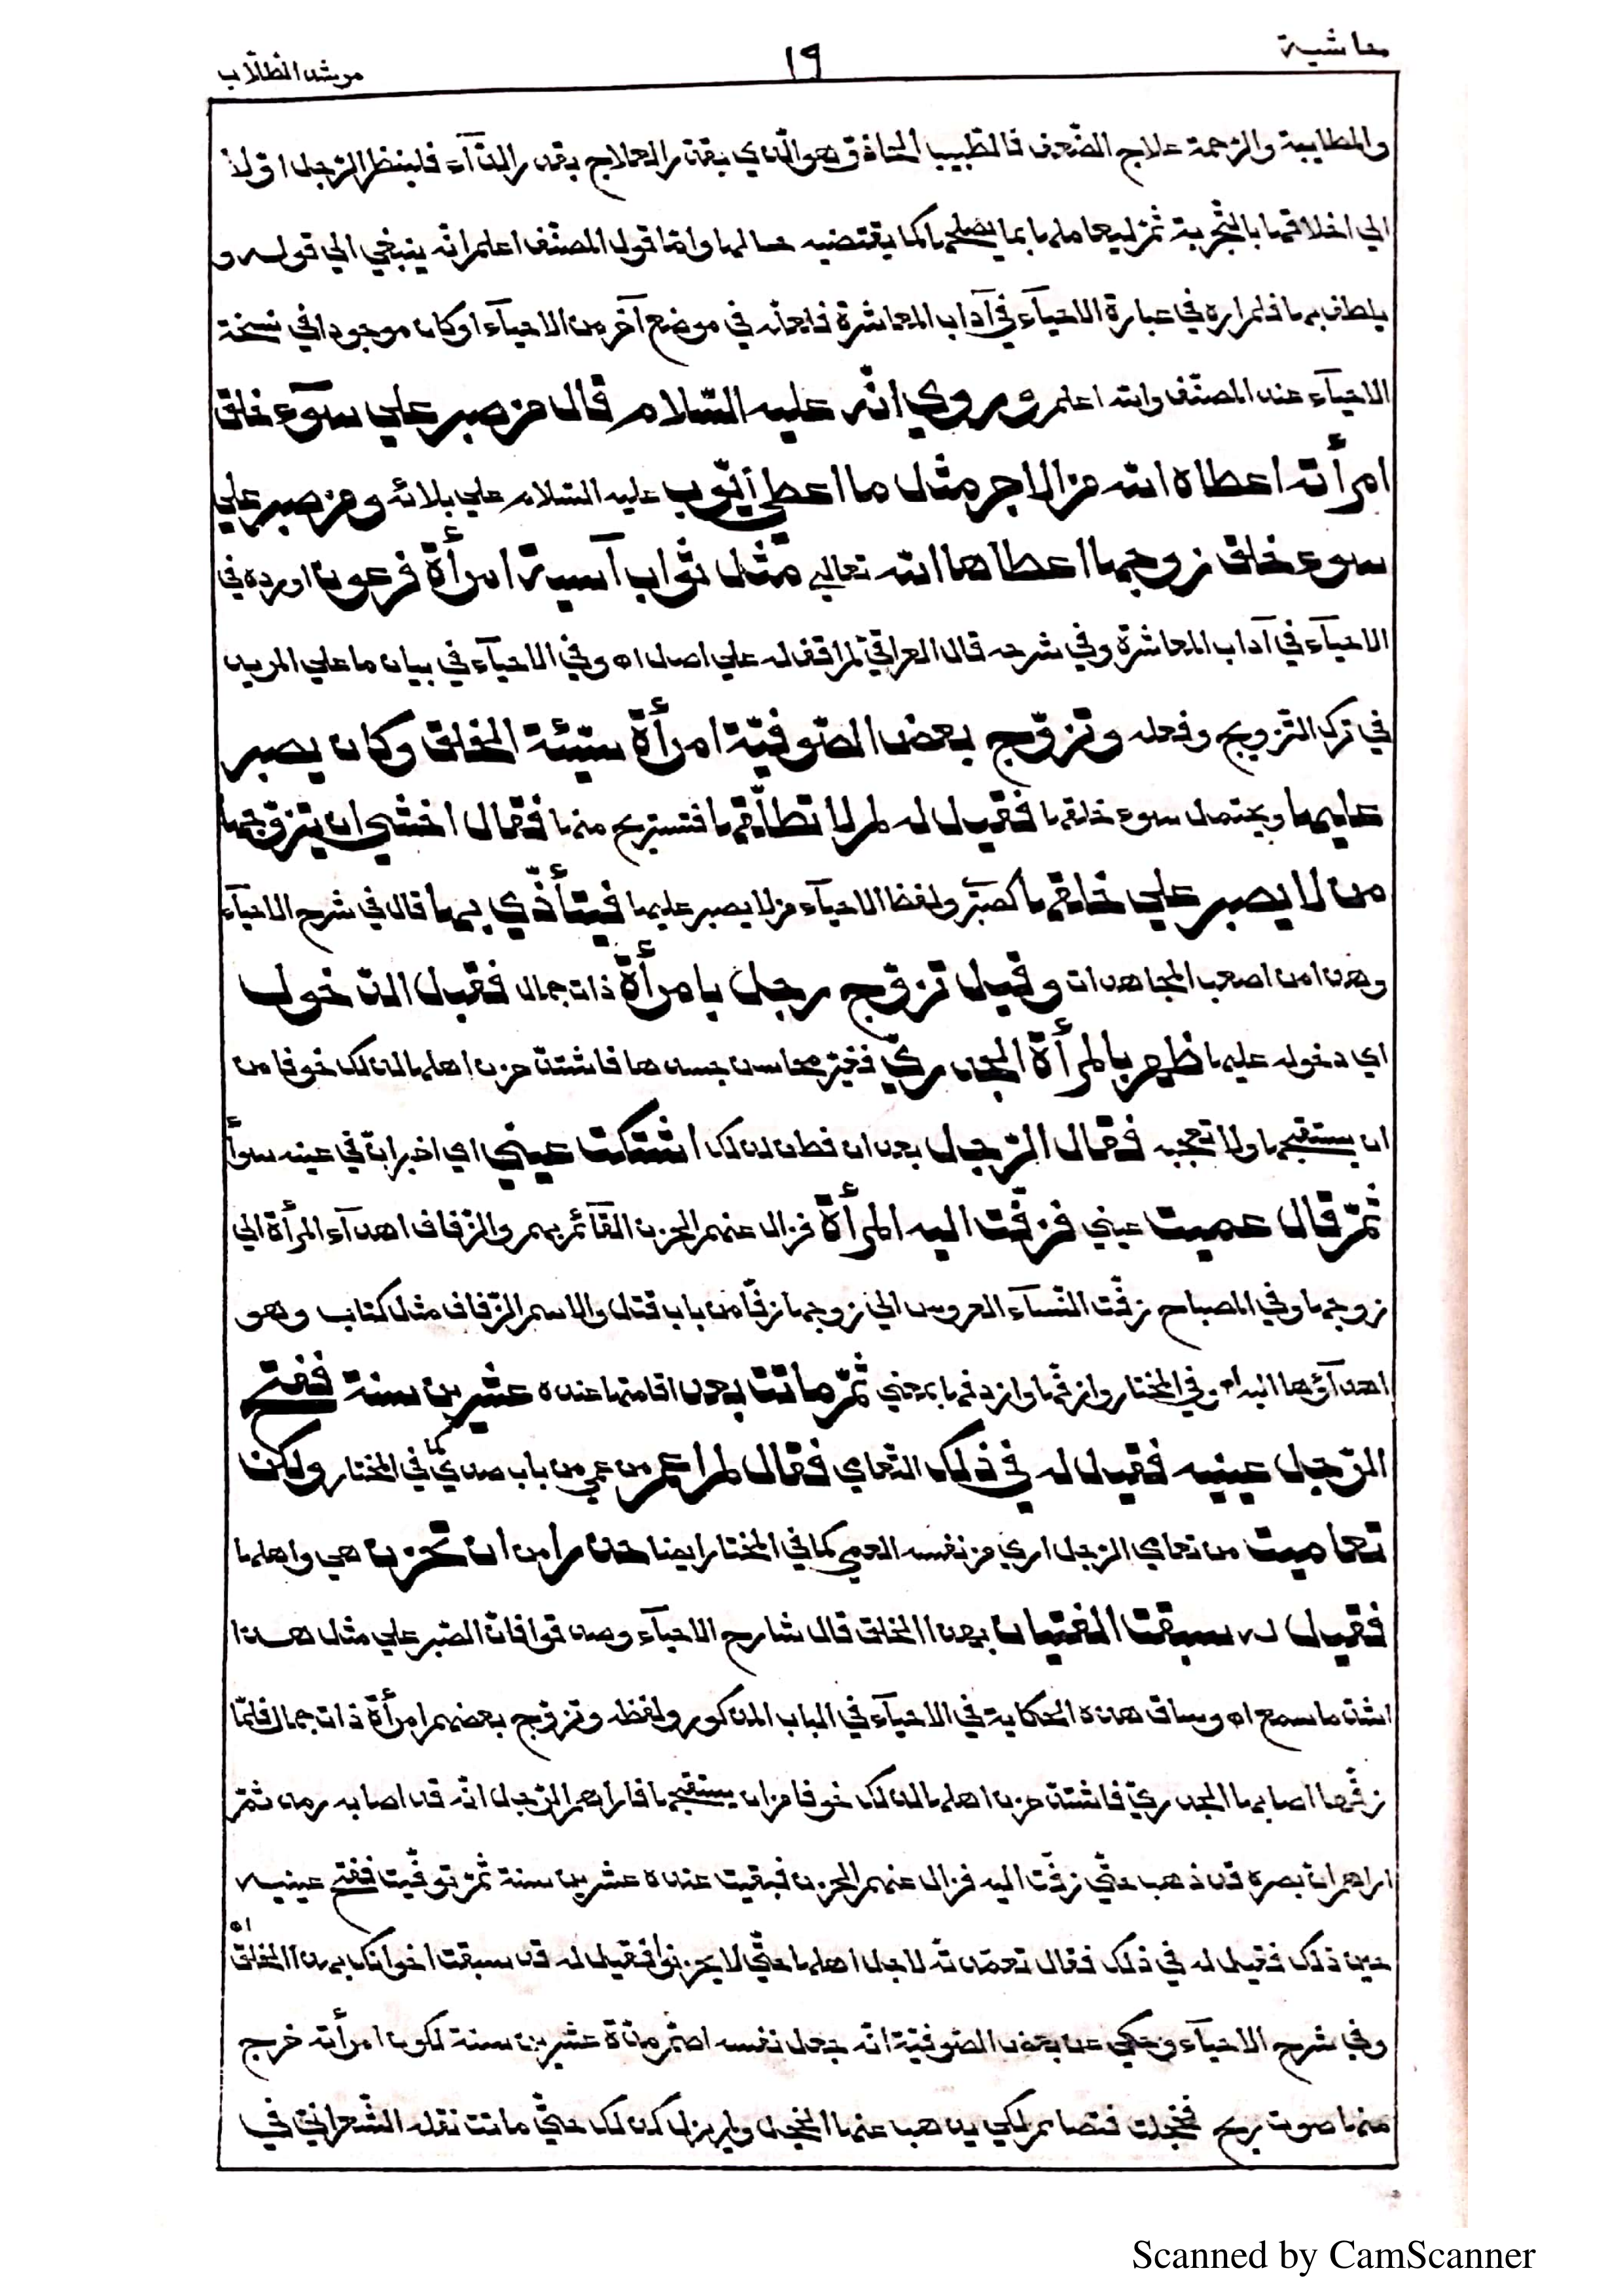 حاشية
١٩
مرشد الطلّاب
والمطايبة والرحمة علاج الضّعف فالطّبيب الحاذق هو الّذي يقدّر العلاج بقدر الدّآء فلينظر الرّجل اوّلاً
الي اخلاقها بالتّجربة ثمّ ليعاملها بما يصلحها كما يقتضيه حالها وامّا قول المصنّف اعلم انّه ينبغي الي قوله و
يلطف بها فلم اره في عبارة الاحيآء في آداب المعاشرة فلعلّه في موضع آخر من الاحيآء او كان موجودا في نسخة
الاحيآء عند المصنّف والله اعلم وروي انّه عليه السّلام قال من صبر علي سوٓء خلق
امرأته اعطاه الله من الاجر مثل ما اعطي ايّوب عليه السّلام علي بلائه ومن صبر علي
سوء خلق زوجها اعطاها الله تعالي مثل ثواب آسية امرأة فرعون اورده في
الاحيآء في آداب المعاشرة وفي شرحه قال العراقيّ لم اقف له علي اصل اه وفي الاحيآء في بيان ما علي المريد
في ترك التّزويج وفعله وتزوّج بعض الصّوفيّة امرأة سيّئة الخلق وكان يصبر
عليها ويحتمل سوء خلقها فقيل له لم لا تطلّقها فتستريح منها فقال اخشي ان يتزوّجها
من لا يصبر علي خلقها كصبري ولفظ الاحيآء من لا يصبر عليها فيتأذّي بها قال في شرح الاحيآء
وهذا من اصعب المجاهدات وقيل تزوّج رجل بامرأة ذات جمال فقبل الدّخول
اي دخوله عليها ظهر بالمرأة الجدريّ فغيّر محاسن جسدها فاشتدّ حزن اهلها لذلك خوفا من
ان يستقبحها ولا تعجبه فقال الرّجل بعد ان فطن لذلك اشتكت عيني اي اخبر انّ في عينه سوأ
ثمّ قال عميت عيني فزفّت اليه المرأة فزال عنهم الحزن القآئم بهم والزّفاف اهدآء المرأة الي
زوجها وفي المصباح زفّت النّسآء العروس الي زوجها زفّا من باب قتل والاسم الزّفاف مثل كتاب وهو
اهدآؤها اليه اه وفي المختار وازفّها وازدفّها بمعني ثمّ ماتت بعد اقامتها عنده عشرين سنة ففتح
الرّجل عينيه فقيل له في ذلك التّعامي فقال لم اعم من عمي من باب صدي كما في المختار ولكن
تعاميت من تعامي الرّجل اري من نفسه العمي كما في المختار ايضا حذرا من ان تحزن هي واهلها
فقيل له سبقت الفتيان بهذا الخلق قال شارح الاحيآء وصدقوا فانّ الصّبر علي مثل هذا
اشدّ ما سمع اه وساق هذه الحكاية في الاحيآء في الباب المذكور ولفظه وتزوّج بعضهم امرأة ذات جمال فلمّا
زفّها اصابها الجدريّ فاشتدّ حزن اهلها لذلك خوفا من ان يستقبحها فاراهم الرّجل انّه قد اصابه رمد ثمّ
اراهم انّ بصره قد ذهب حتّي زفّت اليه فزال عنهم الحزن فبقيت عنده عشرين سنة ثمّ توفّيت ففتح عينيه
حين ذلك فقيل له في ذلك فقال تعمّدته لاجل اهلها حتّي لا يحزنوا فقيل له قد سبقت اخوانك بهذا الخلق اه
وفي شرح الاحيآء وحكي عن بعض الصّوفيّة انّه جعل نفسه اصمّ مدّة عشرين سنة لكون امرأته خرج
منها صوت ريح فخجلت فتصامم لكي يذهب عنها الخجل ولم يزل كذلك حتّي ماتت نقله الشّعرانيّ في
Scanned by CamScanner